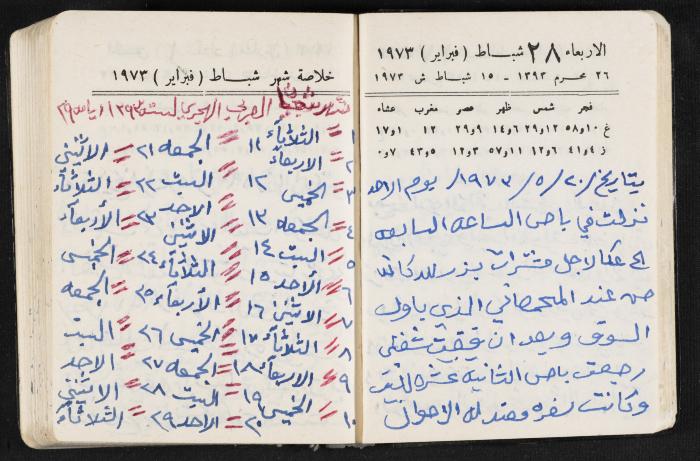 الاربعاء ٢٨ شباط ( فبراير ) ١٩٧٣
٢٦ محرم ١٣٩٣ – ١٥ شباط ش ١٩٧٣
فجر شمس ظهر عصر مغرب عشاء
غ ١٠و٥٨ ١٢و٢٩ ٦و١٤ ٩و٢٩ ١٢ ١و١٧
ز ٤و٤١ ٦و١٢ ١١و٥٧ ٣و١٢ ٥و٤٣ ٧و٠
بتاريخ ٢٠/٥/١٩٧٣/ يوم الاحد
نزلت في باص الساعه السابعه
الى عكا لاجل مشترات بزر للدكانه
من عند المحمصاني الذي باول
السوق وبعد ان قضيت شغلي
رجعت بباص الثانيه عشره للبيت
وكانت سفره معتدله الاحوال
خلاصة شهر شباط ( فبراير ) ١٩٧٣
شهر شعبان العربي الهجري لسنة ١٣٩٣
١ الثلاثاء ١١ الجمعه ٢١ الاثنين
٢ الاربعاء ١٢ السبت ٢٢ الثلاثاء
٣ الخميس الاحد ٢٣ الأربعاء
٤ الجمعه ١٣ الاثنين
٥ السبت ١٤ الثلاثاء ٢٤ الخميس
٦ الأحد ١٥ الأربعاء ٢٥ الجمعه
٧ الاثنين ١٦ الخميس ٢٦ السبت
٨ الثلاثاء ١٧ الجمعه ٢٧ الاحد
٩ الاربعاء ١٨ السبت ٢٨ الاثنين
١٠ الخميس ١٩ الاحد ٢٩ الثلاثاء
٢٠